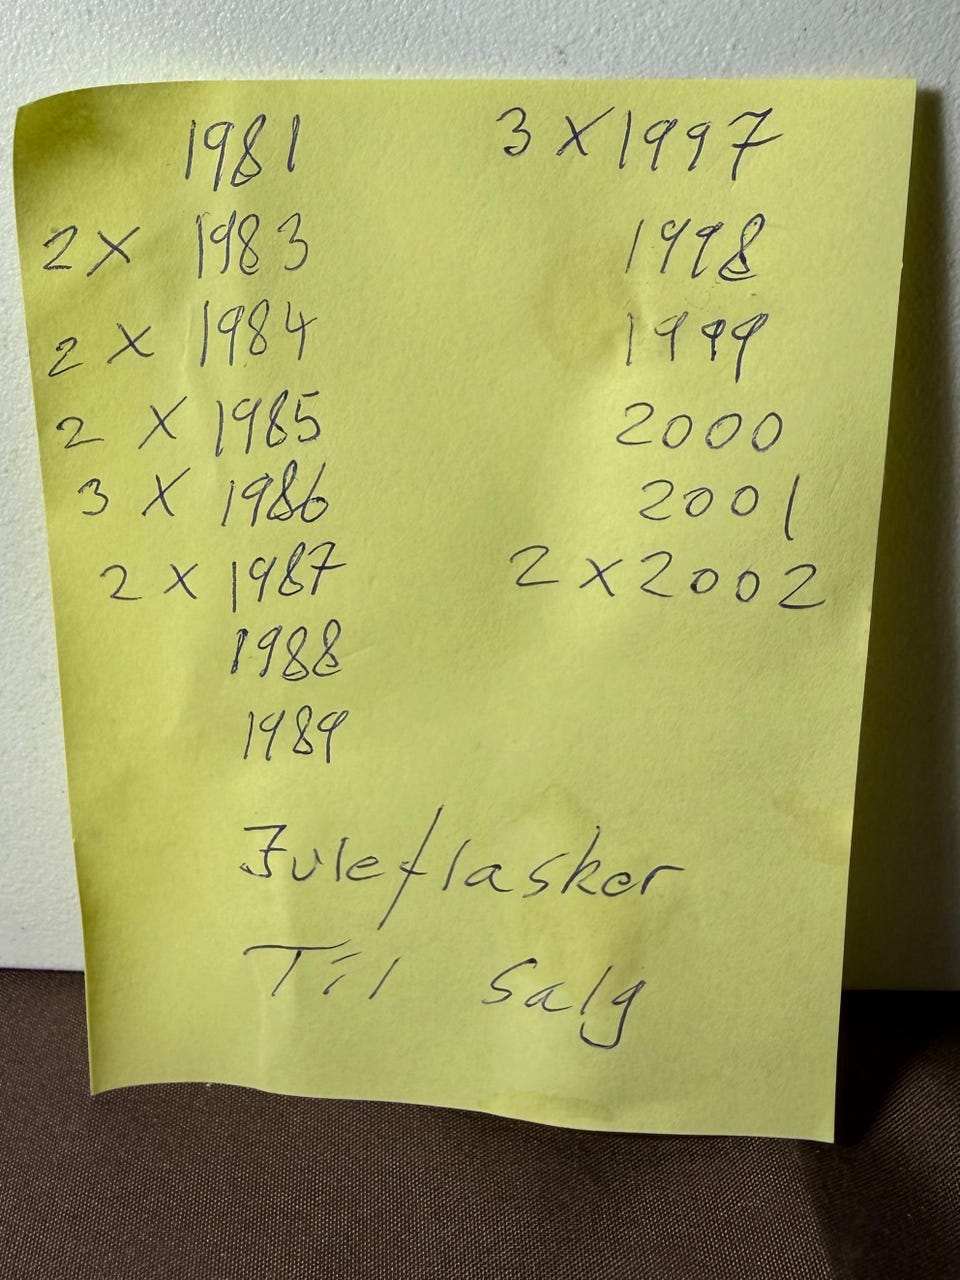 1981
2 X 1983
2 X 1984
2 X 1985
3 X 1986
2 X 1987
1988
1989
3 X 1997
1998
1999
2000
2001
2 X 2002
Juleflasker
Til Salg